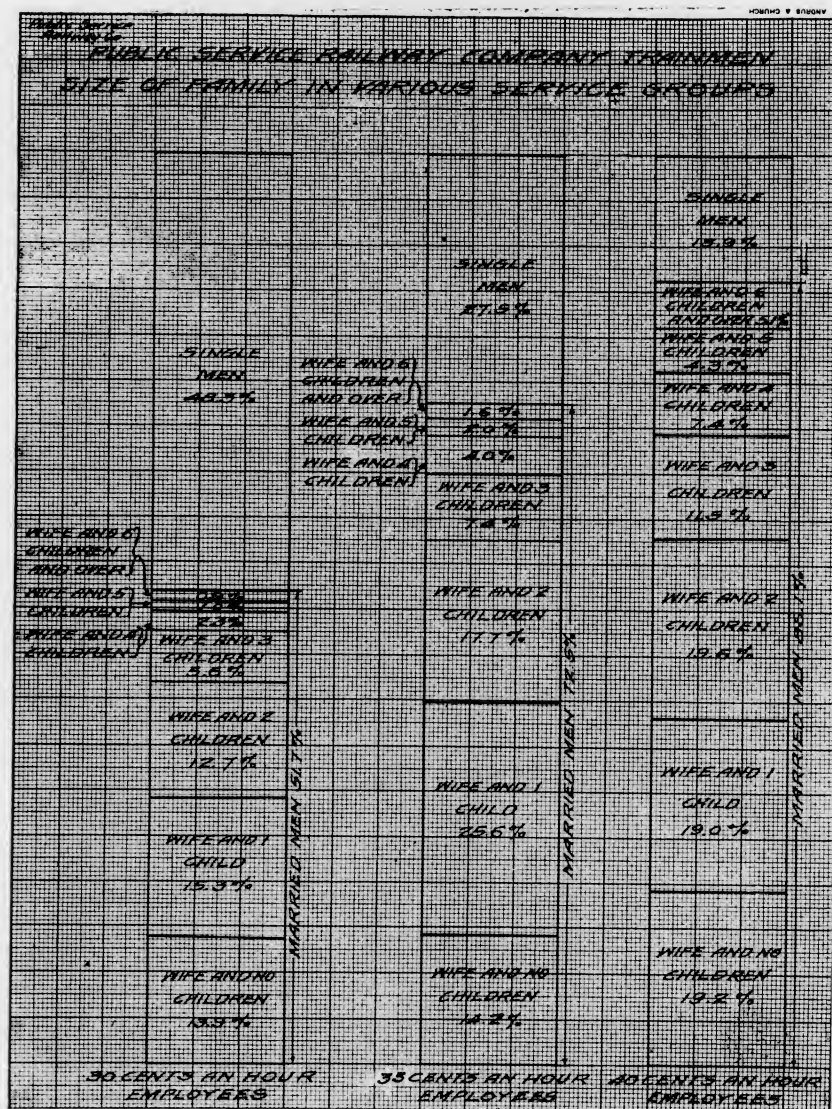 ANDRUS & CHURCH
Public Service
Railway Co
PUBLIC SERVICE RAILWAY COMPANY TRAINMEN
SIZE OF FAMILY IN VARIOUS SERVICE GROUPS
SINGLE
MEN
48.3%
WIFE AND 6
CHILDREN
AND OVER
WIFE AND 5
CHILDREN
WIFE AND 4
CHILDREN
2.3%
WIFE AND 3
CHILDREN
5.8%
WIFE AND 2
CHILDREN
12.7%
WIFE AND 1
CHILD
15.3%
WIFE AND NO
CHILDREN
13.9%
MARRIED MEN 51.7%
30 CENTS AN HOUR
EMPLOYEES
SINGLE
MEN
WIFE AND 6
CHILDREN
AND OVER
1.6%
WIFE AND 5
CHILDREN
2.0%
WIFE AND 4
CHILDREN
4.0%
WIFE AND 3
CHILDREN
7.4%
WIFE AND 2
CHILDREN
17.7%
WIFE AND 1
CHILD
25.6%
WIFE AND NO
CHILDREN
14.2%
MARRIED MEN 72.5%
35 CENTS AN HOUR
EMPLOYEES
SINGLE
MEN
13.9%
WIFE AND 6
CHILDREN
AND OVER 5.1%
WIFE AND 5
CHILDREN
4.3%
WIFE AND 4
CHILDREN
7.4%
WIFE AND 3
CHILDREN
11.5%
WIFE AND 2
CHILDREN
19.6%
WIFE AND 1
CHILD
19.0%
WIFE AND NO
CHILDREN
19.2%
MARRIED MEN 86.1%
40 CENTS AN HOUR
EMPLOYEES